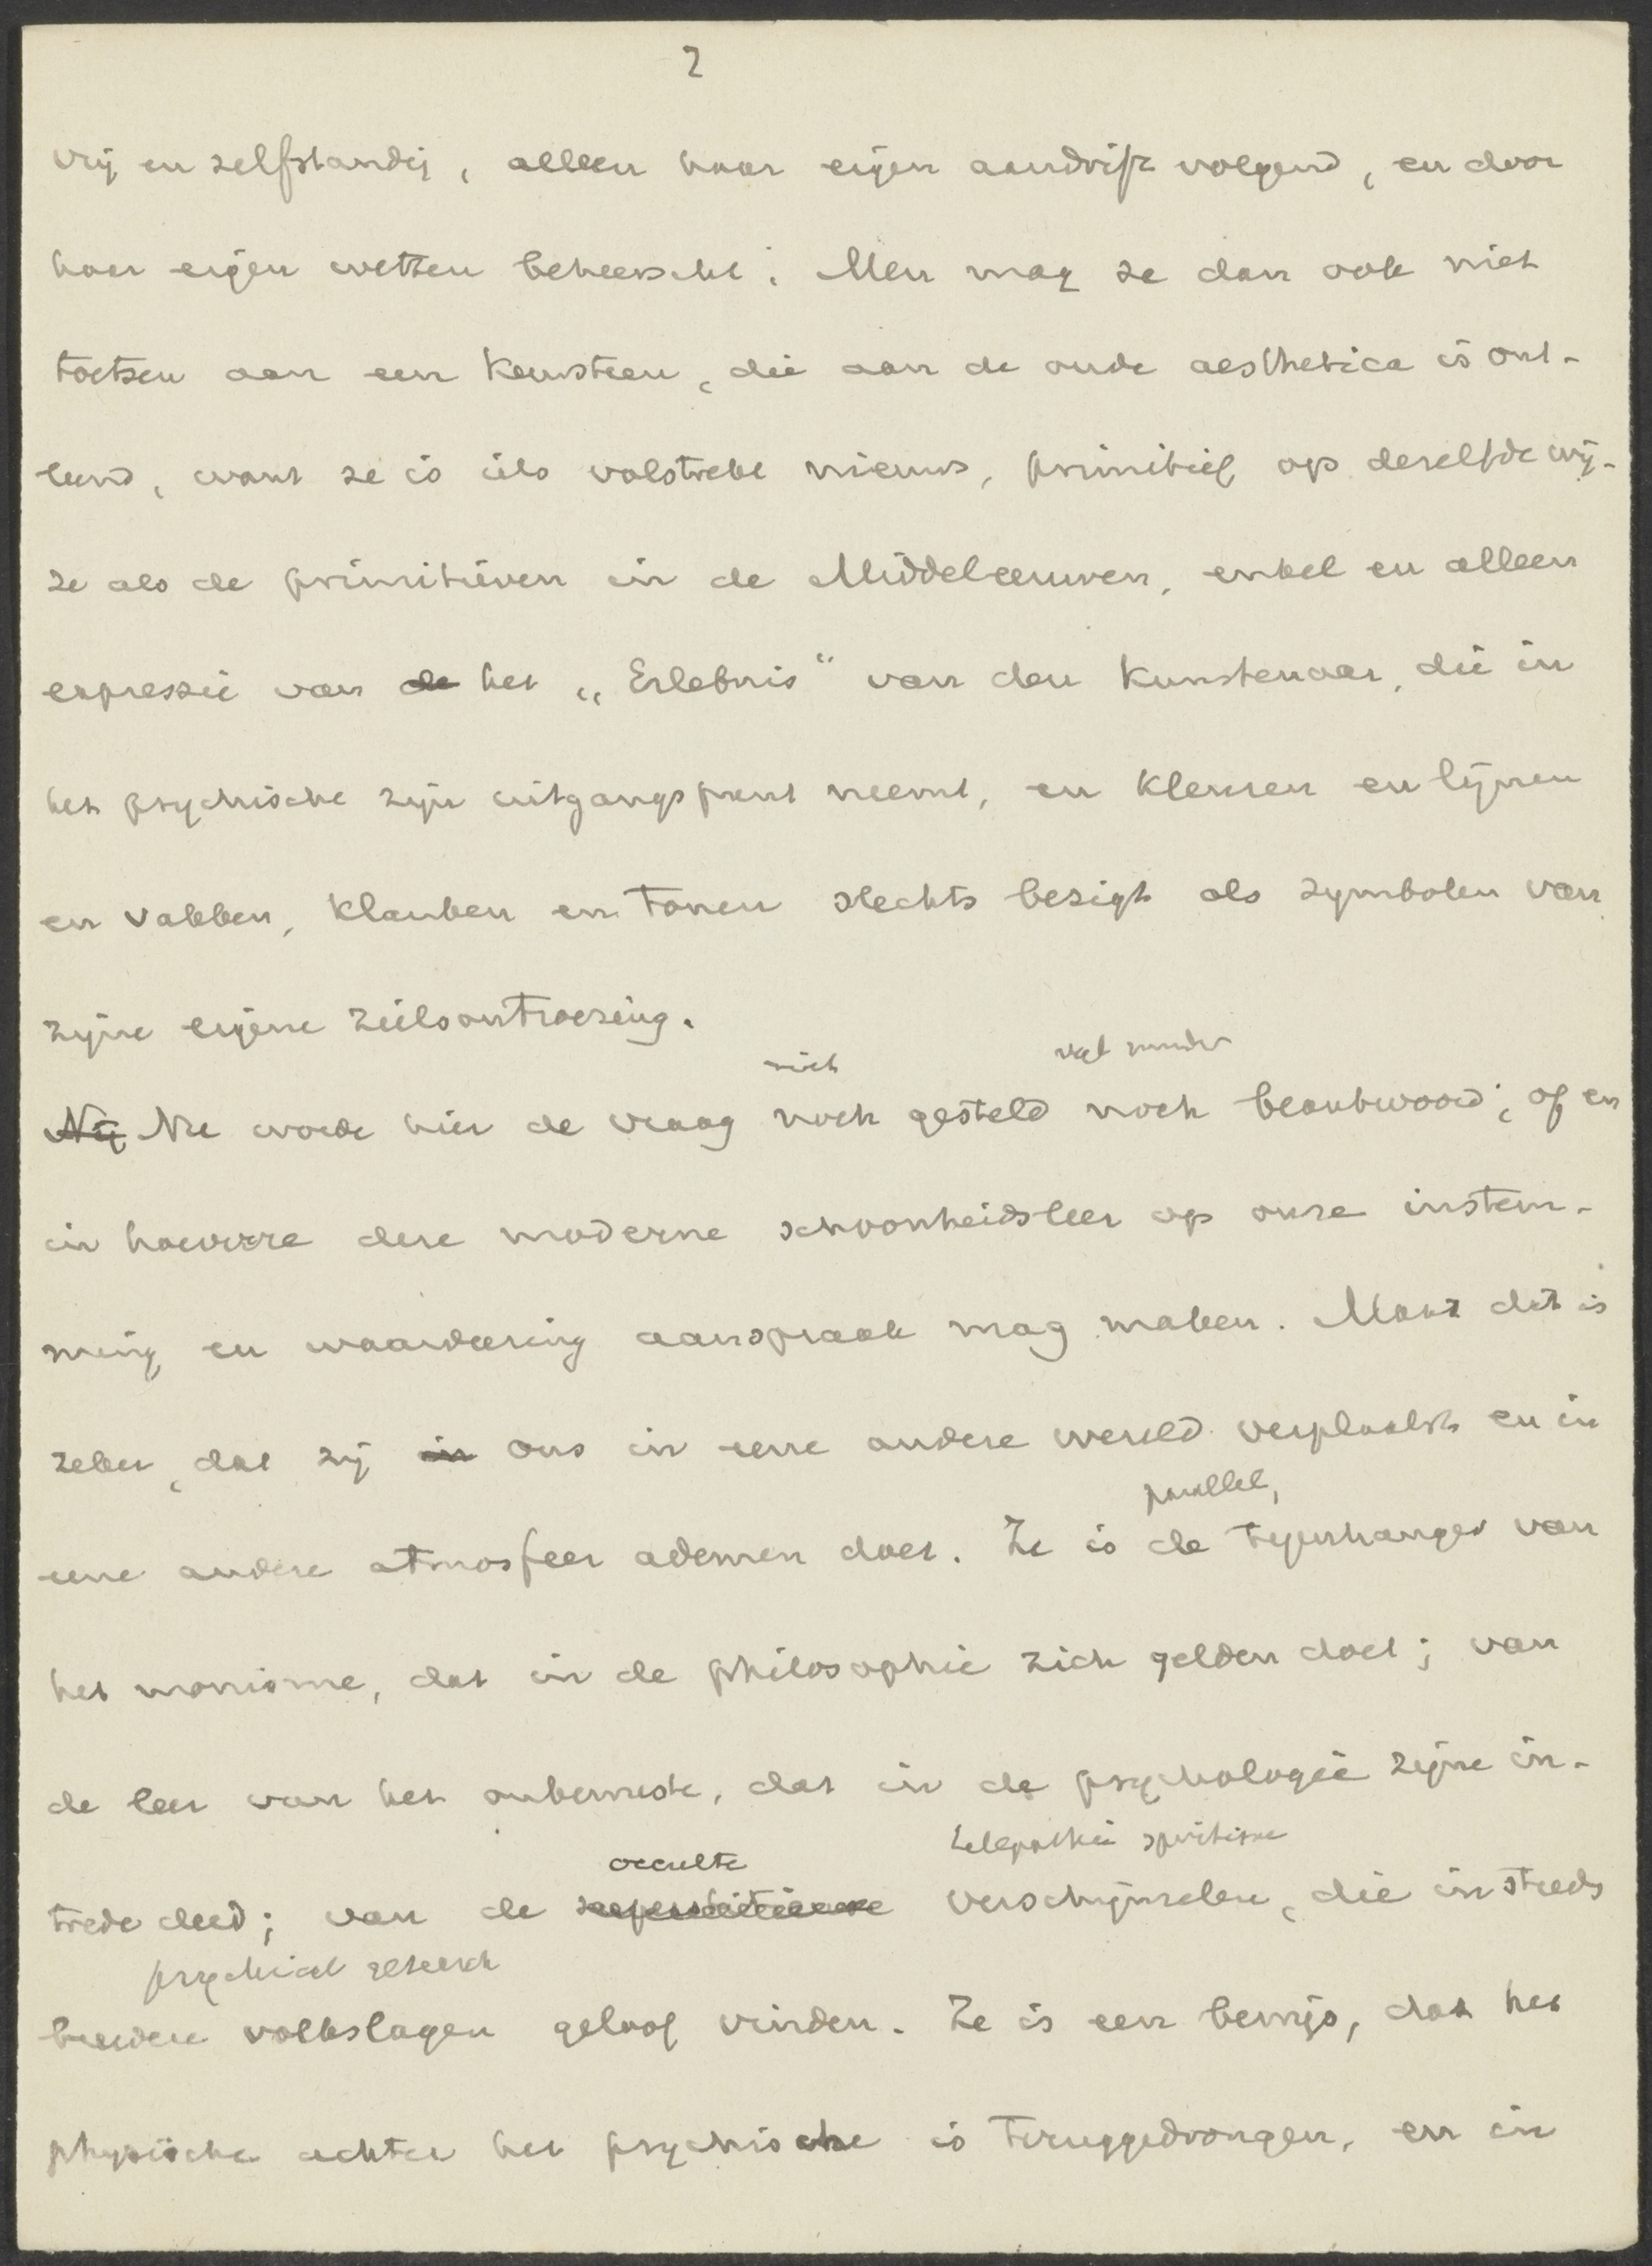 2
vrij en zelfstandig, alleen haar eigen aandrift volgend, en door
haar eigen wetten beheerscht. Men mag ze dan ook niet
toetsen aan een keursteen, die aan de oude aesthetica is ont-
leend, want ze is iets volstrekt nieuws, primitief op dezelfde wij-
ze als de primitieven in de Middeleeuwen, enkel en alleen
expressie van de het „Erlebnis" van den kunstenaar, die in
het psychische zijn uitgangspunt neemt, en kleuren en lijnen
en vakken, klanken en tonen slechts bezigt als symbolen van
zijne eigene zielsontroering.
niet veel minder
Nij Nu worde hier de vraag noch gesteld noch beantwoord, of en
in hoeverre deze moderne schoonheidsleer op onze instem-
ming en waardeering aanspraak mag maken. Maar dit is
zeker, dat zij in ons in eene andere wereld verplaatst en in
parallel,
eene andere atmosfeer ademen doet. Ze is de tegenhanger van
het monisme, dat in de philosophie zich gelden doet; van
de leer van het onbewuste, dat in de psychologie zijne in-
occulte telepathie spiritisme
trede deed; van de superstitieuse verschijnselen, die in steeds
psychical research
breedere volkslagen geloof vinden. Ze is een bewijs, dat het
physische achter het psychische is teruggedrongen, en in